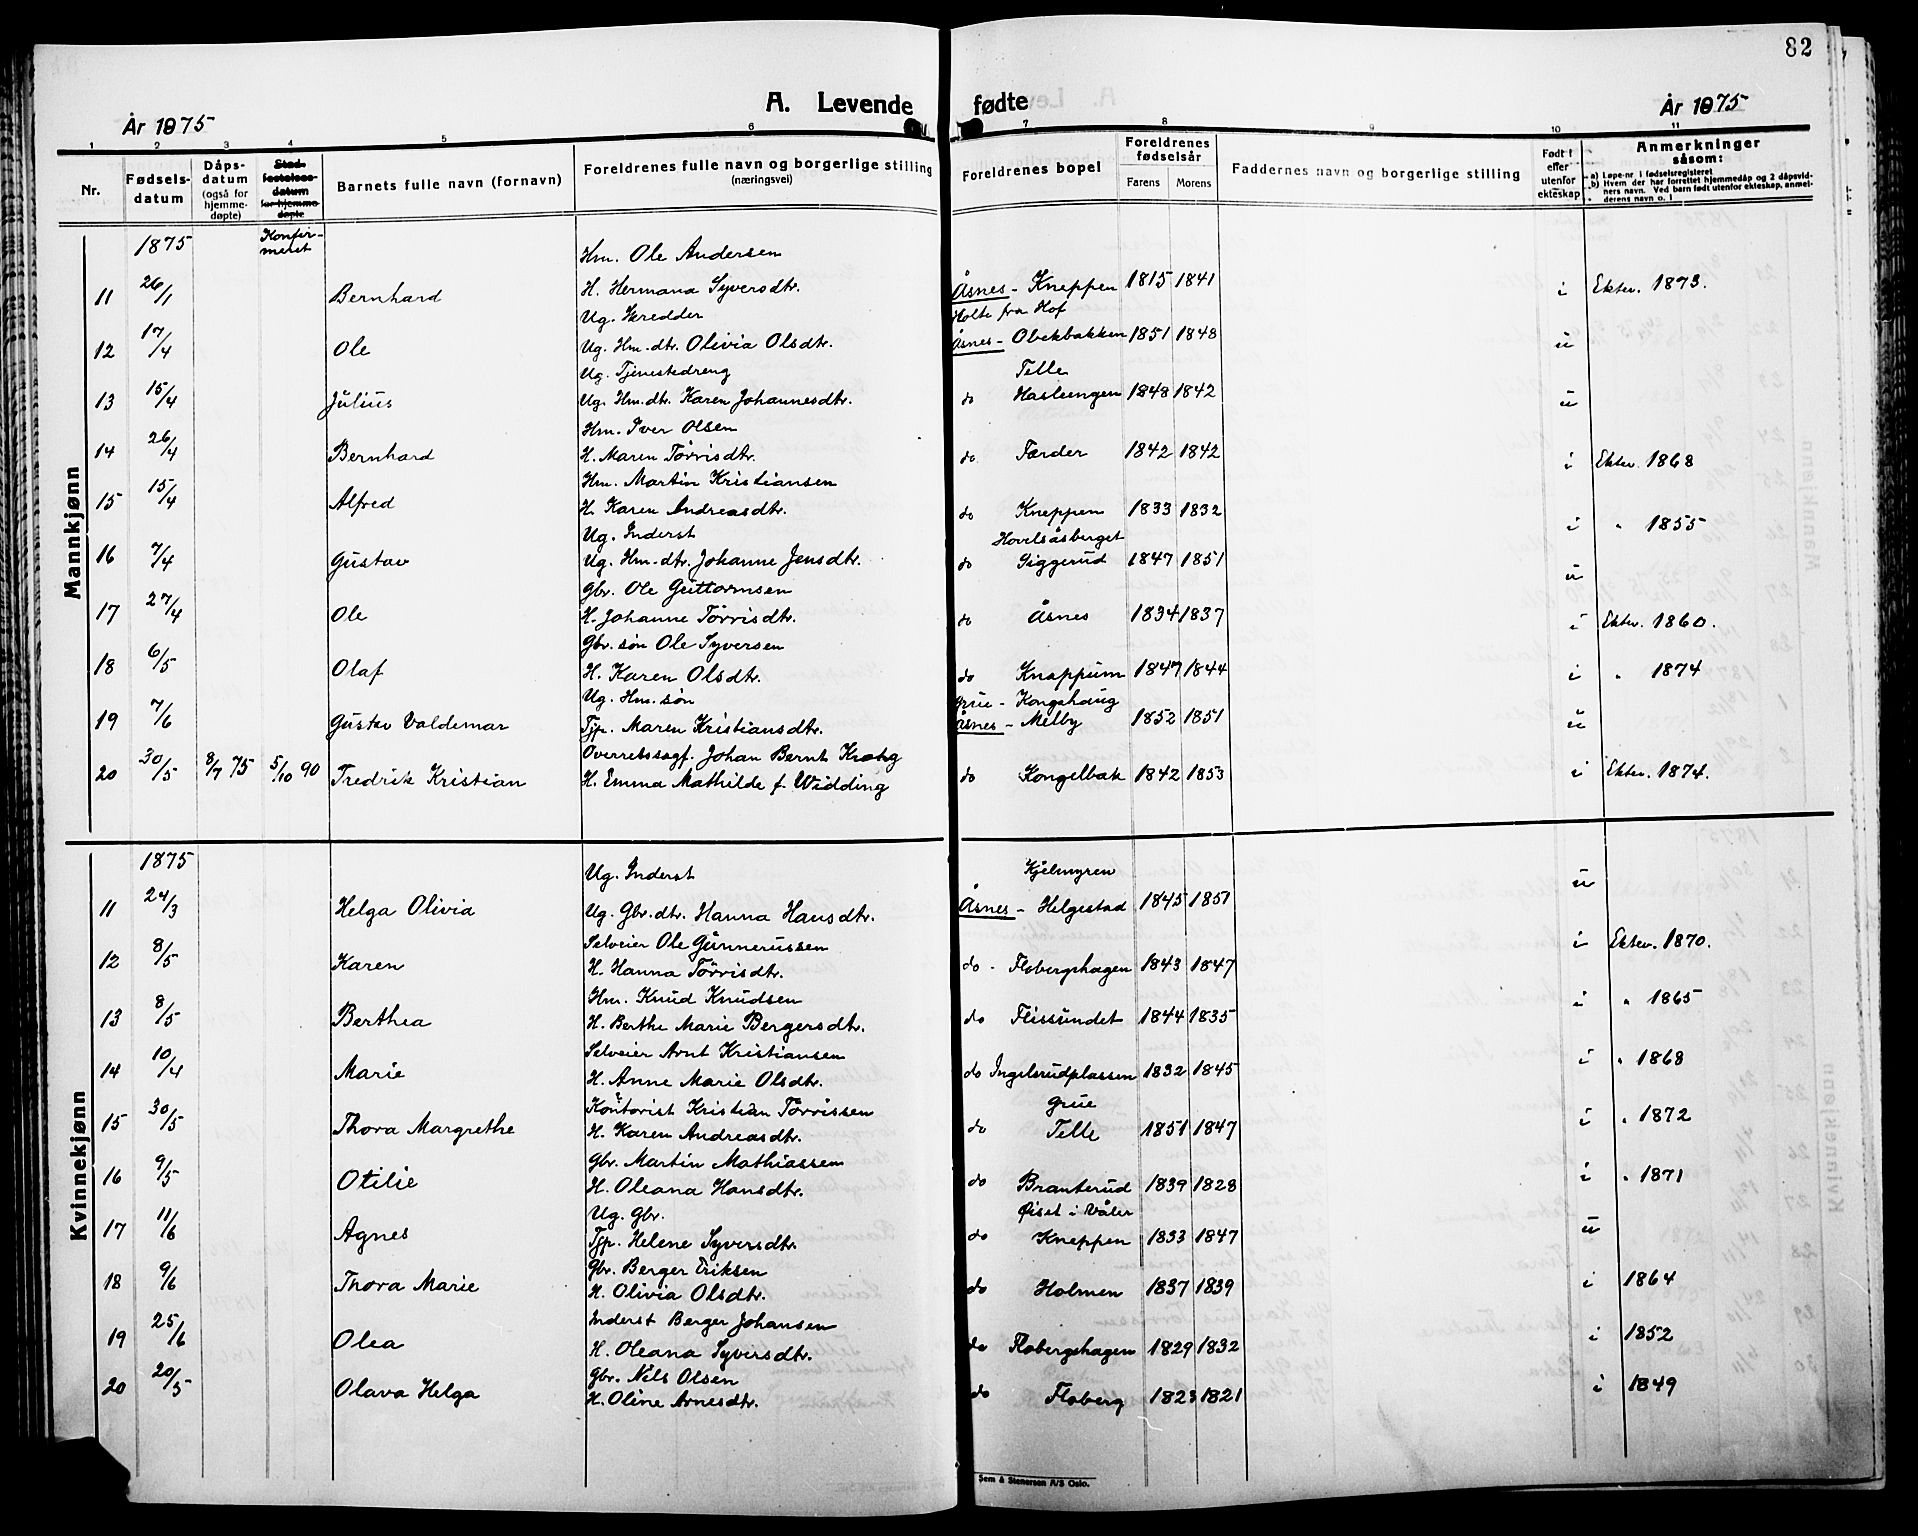 82
A. Levende fødte
År 1875
År 1875
1 2 3 4 5 6 7 8 9 10 11
Nr.
Fødsels-
datum
Dåps-
datum
(også for
hjemme-
døpte)
Stad-
festelses-
datum
for hjemme-
døpte
Barnets fulle navn (fornavn)
Foreldrenes fulle navn og borgerlige stilling
(næringsvei)
Foreldrenes bopel
Foreldrenes
fødselsår
Farens Morens
Faddernes navn og borgerlige stilling
Født i
eller
utenfor
ekteskap
Anmerkninger
såsom:
a) Løpe-nr i fødselsregisteret
b) Hvem der har forrettet hjemmedåp og 2 dåpsvid-
ners navn. Ved barn født utenfor ekteskap, anmel-
derens navn o. l
Mannkjønn
1875 Konfir-
merst
Hm. Ole Andersen
11 26/1 Bernhard H. Hermana Syversdtr. Åsnes - Kneppen 1815 1841 i Ektev. 1873.
Ug. Skredder Holte fra Hof
12 17/4 Ole Ug. Hm.-dtr. Olivia Olsdtr. Åsnes - Obekbakken 1851 1848 u
Ug. Tjenestedreng Telle
13 15/4 Julius Ug. Hm.dtr. Karen Johannesdtr. do Hasleengen 1848 1842 u
Hm. Iver Olsen
14 26/4 Bernhard H. Maren Tørrisdtr. do. Færder 1842 1842 i Ektev. 1868
Hm. Martin Kristiansen
15 15/4 Alfred H. Karen Andreasdtr. do Kneppen 1833 1832 i " 1855
Ug. Inderst Hovelsåsberget
16 7/4 Gustav Ug. Hm.-dtr. Johanne Jensdtr. do Siggerud 1847 1851 u
Gbr. Ole Guttormsen
17 27/4 Ole H. Johanne Tørrisdtr. do Åsnes 1834 1837 i Ektev. 1860.
Gbr. søn Ole Syversen
18 6/5 Olaf H. Karen Olsdtr. do Knappum 1847 1844 i " 1874
Ug. Hm. søn Grue - Kongshaug
19 7/6 Gustav Valdemar Tjp. Maren Kristiansdtr. Åsnes - Melby 1852 1851 u
Overretssagf. Johan Bernt Krohg
20 30/5 8/7 75 5/10 90 Fredrik Kristian H. Emma Mathilde f. Widding do Kongelbak 1842 1853 i Ektev. 1874.
Kvinnekjønn
1875
Ug. Inderst Kjelmyren
11 24/3 Helga Olivia Ug. Gbr.dtr. Hanna Hansdtr. Åsnes - Helgestad 1845 1851 u
Selveier Ole Gunnerussen
12 8/5 Karen H. Hanna Tørrisdtr. do - Flobergshagen 1843 1847 i Ektev. 1870.
Hm. Knud Knudsen
13 8/5 Berthea H. Berthe Marie Bergersdtr. do Flissundet 1844 1835 i " 1865
Selveier Arnt Kristiansen
14 10/4 Marie H. Anne Marie Olsdtr. do Ingelsrudplassen 1832 1845 i " 1868
Kontorist Kristian Tørrissen Grue
15 30/5 Thora Margrethe H. Karen Andreasdtr. do Telle 1851 1847 i " 1872
Gbr. Martin Mathiassen
16 9/5 Otilie H. Oleana Hansdtr. do Branterud 1839 1828 i " 1871
Ug. Gbr. Øiset i Våler
17 11/6 Agnes Tjp. Helene Syversdtr. do Kneppen 1833 1847 u
Gbr. Berger Eriksen
18 9/6 Thora Marie H. Olivia Olsdtr. do Holmen 1837 1839 i 1864
Inderst Berger Johansen
19 25/6 Olea H. Oleana Syversdtr. do Flobergshagen 1829 1832 i 1852
Gbr. Nils Olsen
20 20/5 Olava Helga H. Oline Arnesdtr. do Floberg 1823 1821 i 1849
Sem & Stenersen A/S Oslo.